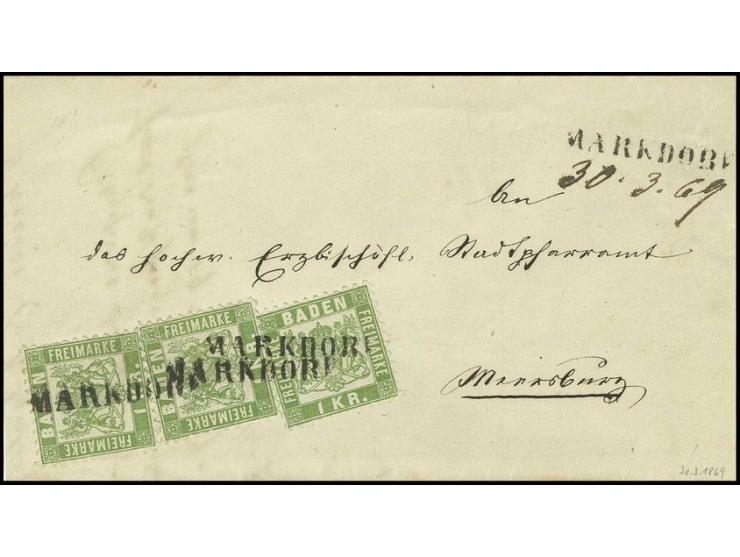 MARKDORF
30. 3. 69
An
das hochw. Erzbischöfl. Stadtpfarramt
Meersburg
BADEN
FREIMARKE
FREIMARKE
1 KR.
BADEN
FREIMARKE
FREIMARKE
BADEN
FREIMARKE
FREIMARKE
1 KR.
MARKDORF
MARKDORF
MARKDORF
30.3.1869